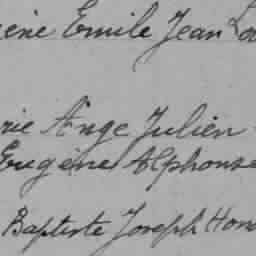 ène Emile Jean Lo
rie Ange Julien
Eugène Alphonse
Baptiste Joseph Hono